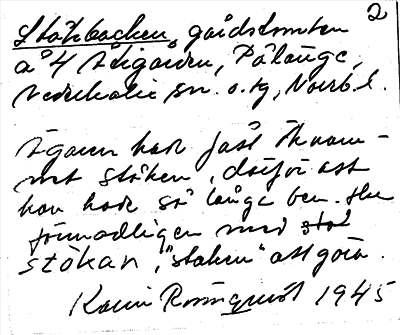 2
Ståkbacken, gårdstomten
å 4 Åtigården, Pålänge,
Nederkalix sn. o. tg, Norrb. l.
Ägaren har fått öknam-
net ståken, därför att
han har så långa ben. Har
förmodligen med
stökan, "staken" att göra.
Karin Rosenquist 1945